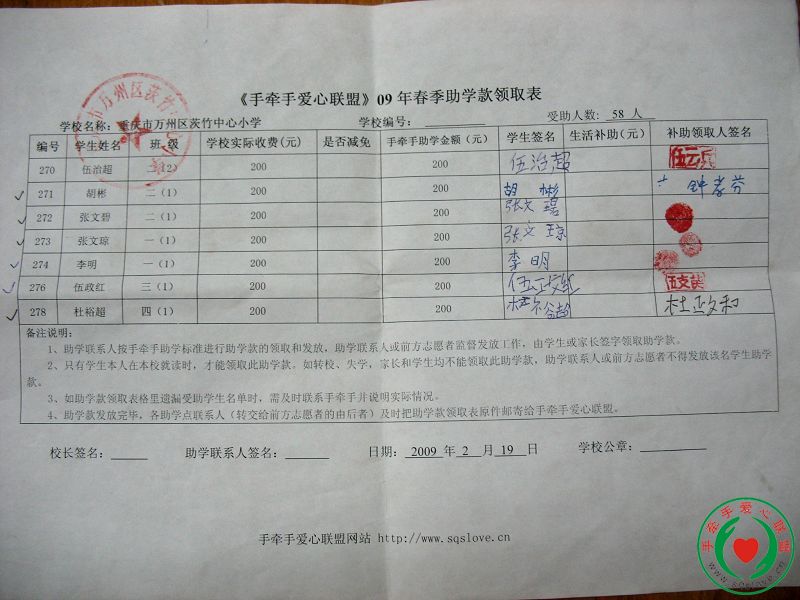 《手牵手爱心联盟》09 年春季助学款领取表
受助人数: 58 人
学校名称: 重庆市万州区茨竹中心小学 学校编号:
编号 学生姓名 班 级 学校实际收费(元) 是否减免 手牵手助学金额（元） 学生签名 生活补助(元) 补助领取人签名
270 伍治超 二(2) 200 200 伍治超 伍云兵
271 胡彬 二(1) 200 200 胡彬 钟孝芬
272 张文碧 二(1) 200 200 张文碧
273 张文琼 一(1) 200 200 张文琼
274 李明 一(1) 200 200 李明
276 伍政红 三(1) 200 200 伍政红
278 杜裕超 四(1) 200 200 杜裕超 杜政和
备注说明：
1、助学联系人按手牵手助学标准进行助学款的领取和发放，助学联系人或前方志愿者监督发放工作，由学生或家长签字领取助学款。
2、只有学生本人在本校就读时，才能领取此助学款。如转校、失学，家长和学生均不能领取此助学款，助学联系人或前方志愿者不得发放该名学生助学
款。
3、如助学款领取表格里遗漏受助学生名单时，需及时联系手牵手并说明实际情况。
4、助学款发放完毕，各助学点联系人（转交给前方志愿者的由后者）及时把助学款领取表原件邮寄给手牵手爱心联盟。
校长签名： 助学联系人签名： 日期： 2009 年 2 月 19 日 学校公章：
手牵手爱心联盟网站 http://www.sqslove.cn
手牵手爱心联盟
www.sqslove.cn